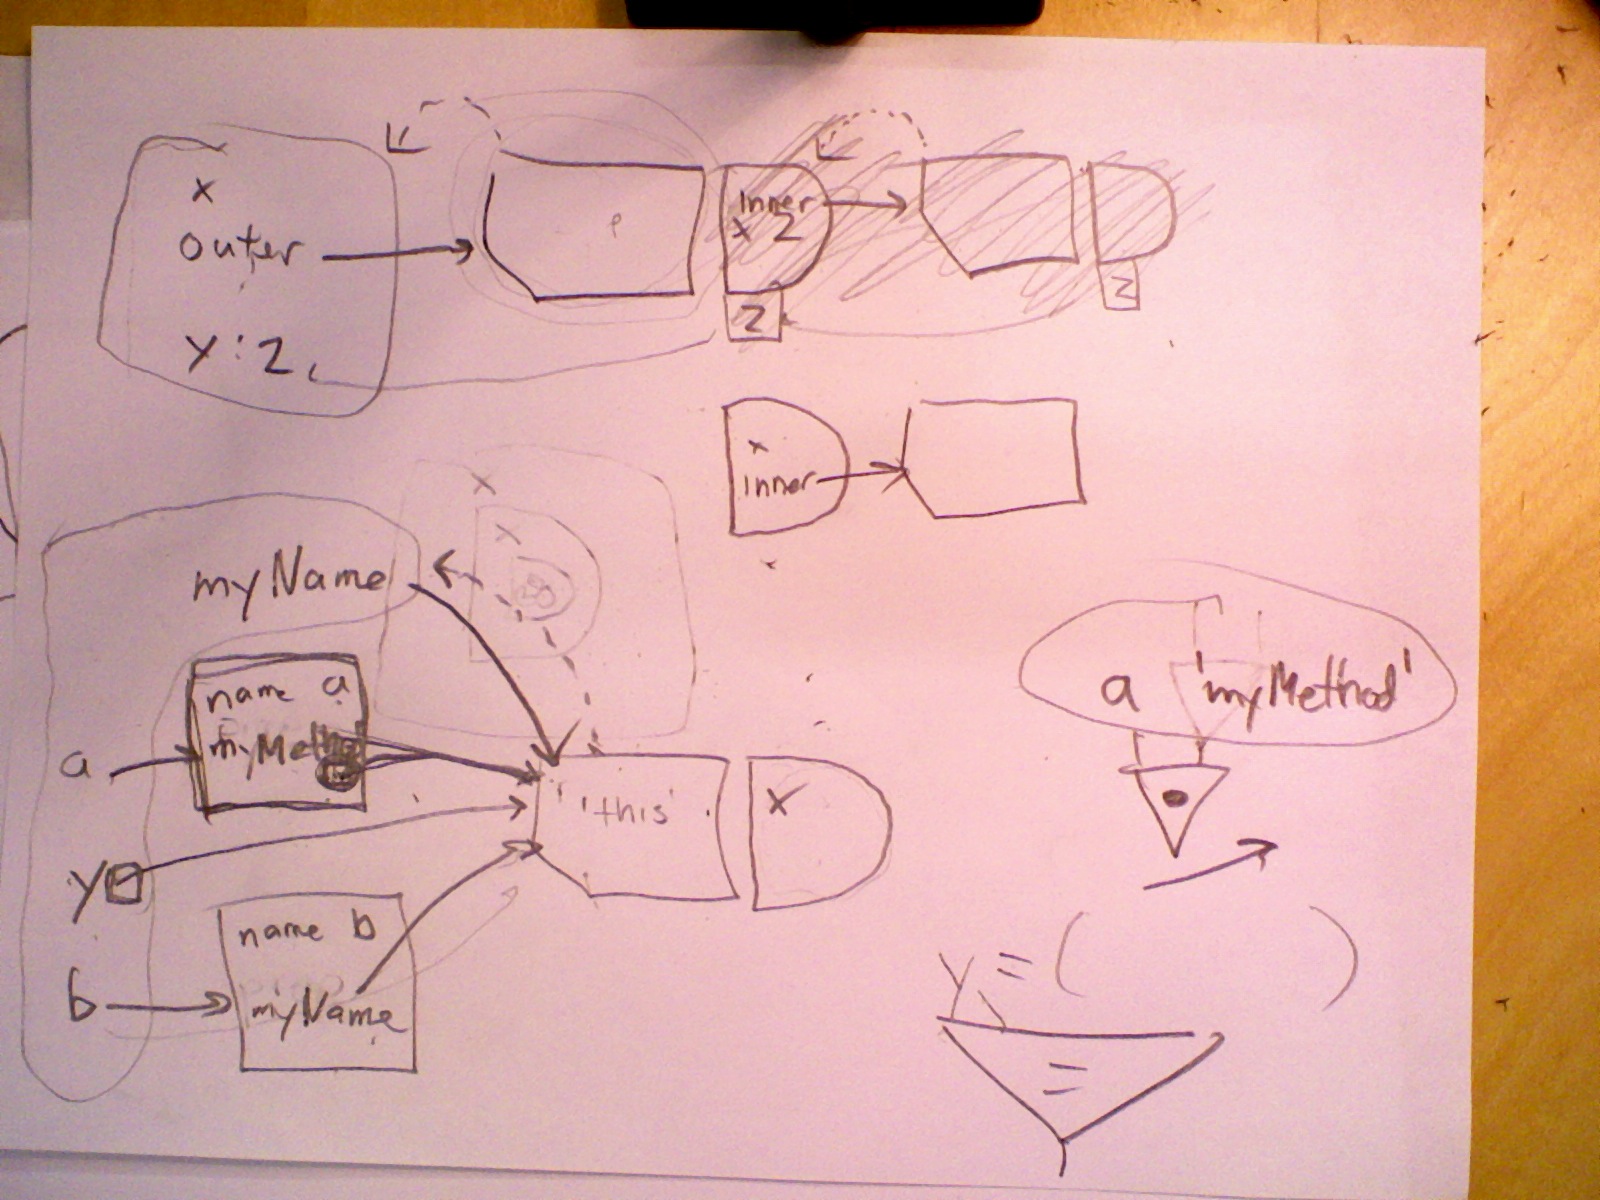 x
outer
y:2
inner
x 2
2
2
x
inner
x
x
myName
name a
myMetho
a
'this'
x
y
name b
b
myName
a 'myMethod'
y = ( )
=